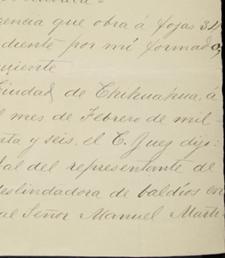 gencia que obra á fojas 34
diente por mí formado,
quiente
Ciudad de Chihuahua, á
l mes de Febrero de mil
nta y seis, el C. Juez dijo:
tal del representante de
eslindadora de baldíos en
al Señor Manuel Martí